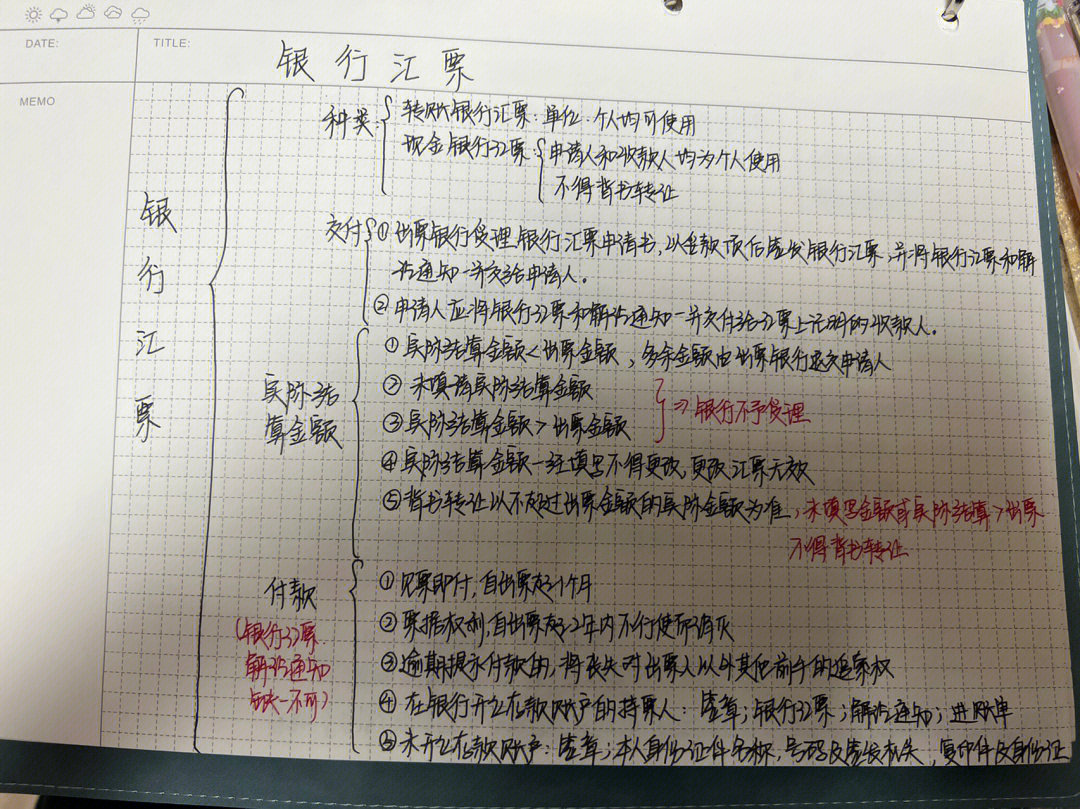 DATE:
TITLE:
银行汇票
MEMO
银行汇票
种类
转账银行汇票：单位、个人均可使用
现金银行汇票：申请人和收款人均为个人使用
不得背书转让
交付
①出票银行受理银行汇票申请书，收金款项后签发银行汇票，并将银行汇票和解
讫通知一并交给申请人。
②申请人应将银行汇票和解讫通知一并交付给汇票上记明的收款人。
实际结算金额
①实际结算金额＜出票金额，多余金额由出票银行退交申请人
②未填清实际结算金额
③实际结算金额＞出票金额
⇒银行不予受理
④实际结算金额一经填写不得更改，更改汇票无效
⑤背书转让以不超过出票金额的实际金额为准，未填写金额或实际结算＞出票
不得背书转让
付款
(银行汇票
解讫通知
缺一不可)
①见票即付，自出票起1个月
②票据权利，自出票起2年内不行使而消灭
③逾期提示付款的，将丧失对出票人以外其他前手的追索权
④在银行开立存款账户的持票人：签章；银行汇票；解讫通知；进账单
⑤未开立存款账户：签章；本人身份证件名称，号码及签发机关，复印件及身份证